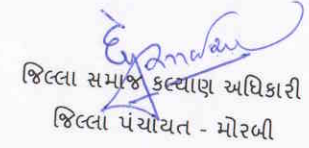 જિલ્લા સમાજ કલ્યાણ અધિકારી
જિલ્લા પંચાયત - મોરબી